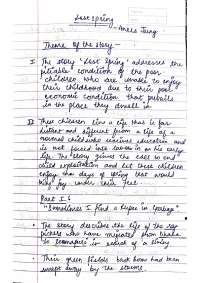 Lost Spring
- Anees Jung
Theme of the story -
I The story 'Lost Spring' addresses the
pitiable condition of the poor
children who are unable to enjoy
their childhood due to their poor
economic condition that prevails
in the place they dwell in
II These children live a life that is far
distant and different from a life of a
normal child who receives education and
is not forced into labour in an early
life. The story gives the call to end
child exploitation and let these children
enjoy the days of spring that would
bring joy under their feet.
Part I :
"Sometimes I find a Rupee in Garbage"
The story describes the life of the rag
pickers who have migrated from Dhaka
to in search of a living
Their green fields and home had been
swept away by the storms.